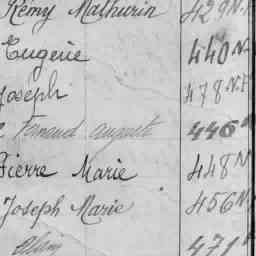 Rémy Mathurin 429 N.
Eugène 440 N.
Joseph 478 N.F
Fernand Auguste 446 N
Pierre Marie 448 N
Joseph Marie 456 N.
471